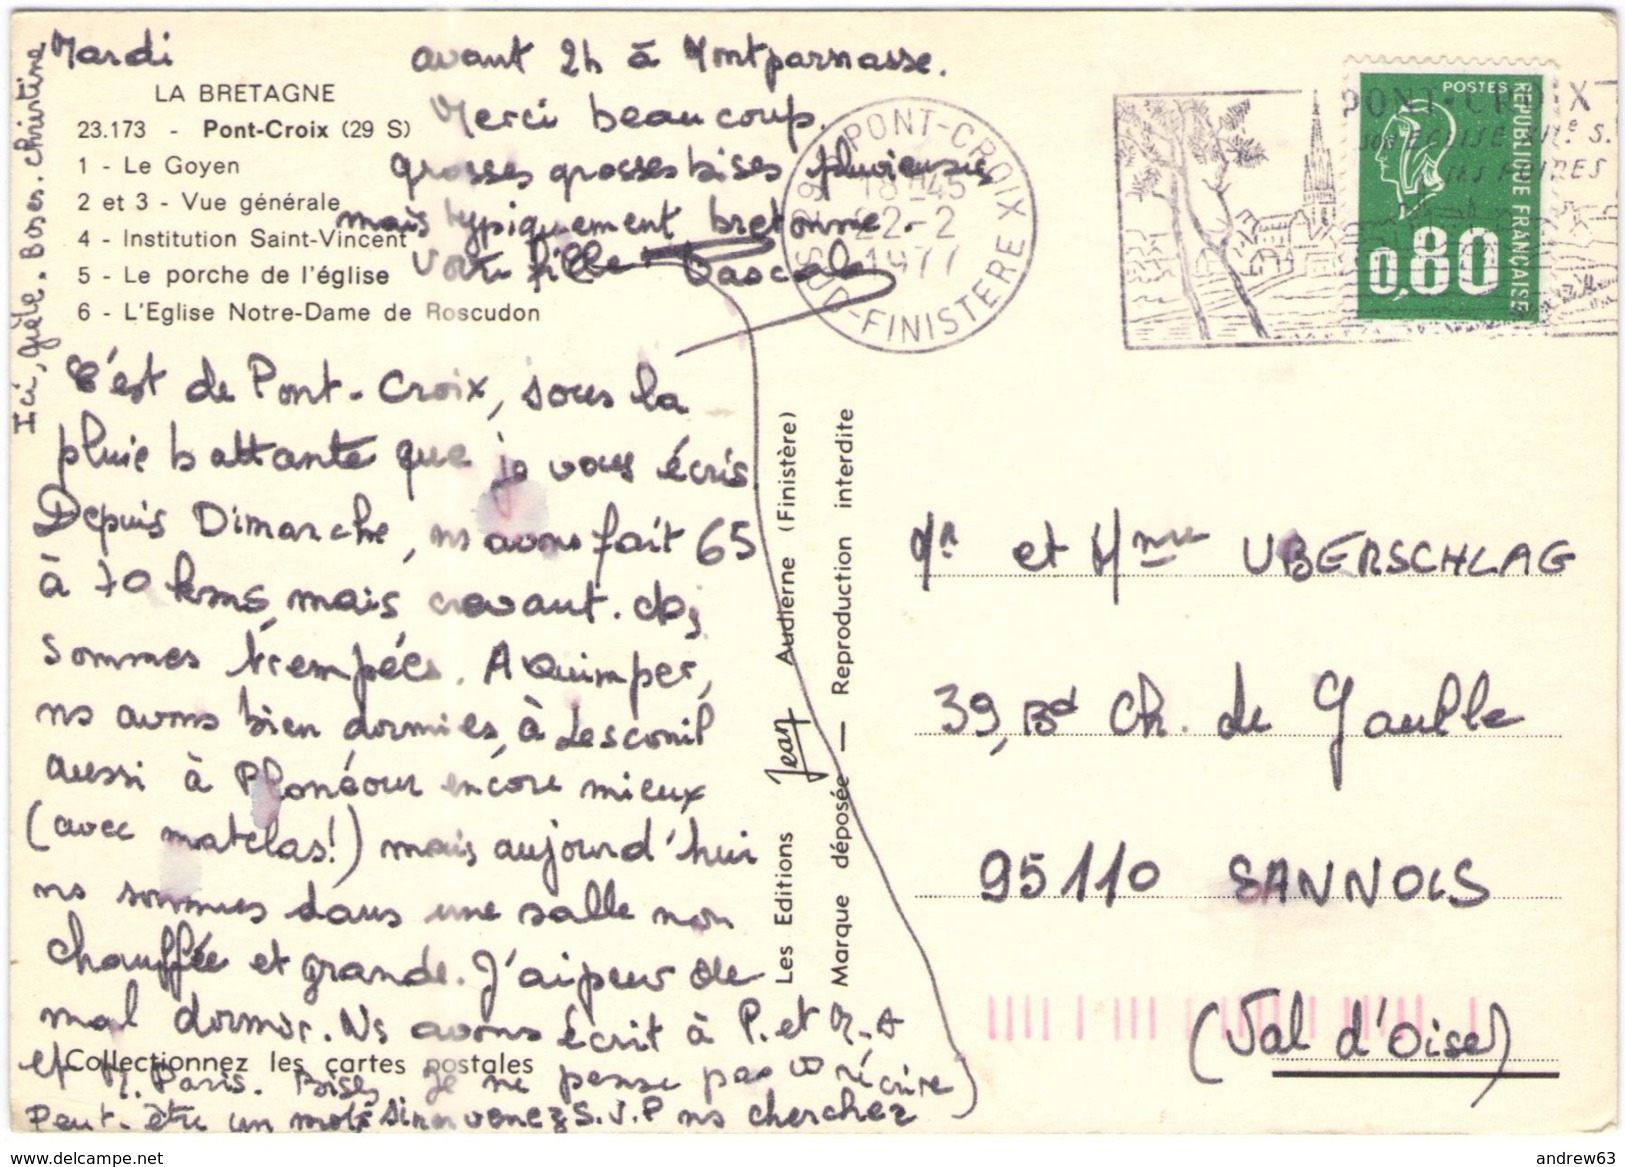 Mardi
LA BRETAGNE
23.173 - Pont-Croix (29 S)
1 - Le Goyen
2 et 3 - Vue générale
4 - Institution Saint-Vincent
5 - Le porche de l'église
6 - L'Eglise Notre-Dame de Roscudon
C'est de Pont-Croix, sous la
pluie battante que je vous écris
Depuis Dimanche, ns avons fait 65
à 70 kms, mais crevant.
sommes trempées. A Quimper,
ns avons bien dormies, à Lesconil
aussi à Plonéour encore mieux
(avec matelas!) mais aujourd'hui
ns sommes dans une salle non
chauffée et grande. J'ai peur de
mal dormir. Ns avons écrit à P. et M.A
et M. Paris. Bises, Je ne pense pas vs réécrire
Peut-être un mot sinon venez S.V.P ns chercher
Collectionnez les cartes postales
avant 2h à Montparnasse.
Merci beaucoup.
grosses grosses bises pluvieuses
mais typiquement bretonne.
Votre fille Pascale
Ici, gèle. Bises. Christine
Les Editions Jean Audierne (Finistère)
Marque déposée — Reproduction interdite
29 PONT-CROIX
18H45
22-2
1977
SUD-FINISTERE
PONT-CROIX
SON EGLISE
SES FOIRES
POSTES
REPUBLIQUE FRANÇAISE
0,80
Mr et Mme UBERSCHLAG
39, Bd Ch. de Gaulle
95110 SANNOIS
(Val d'Oise)
www.delcampe.net
andrew63